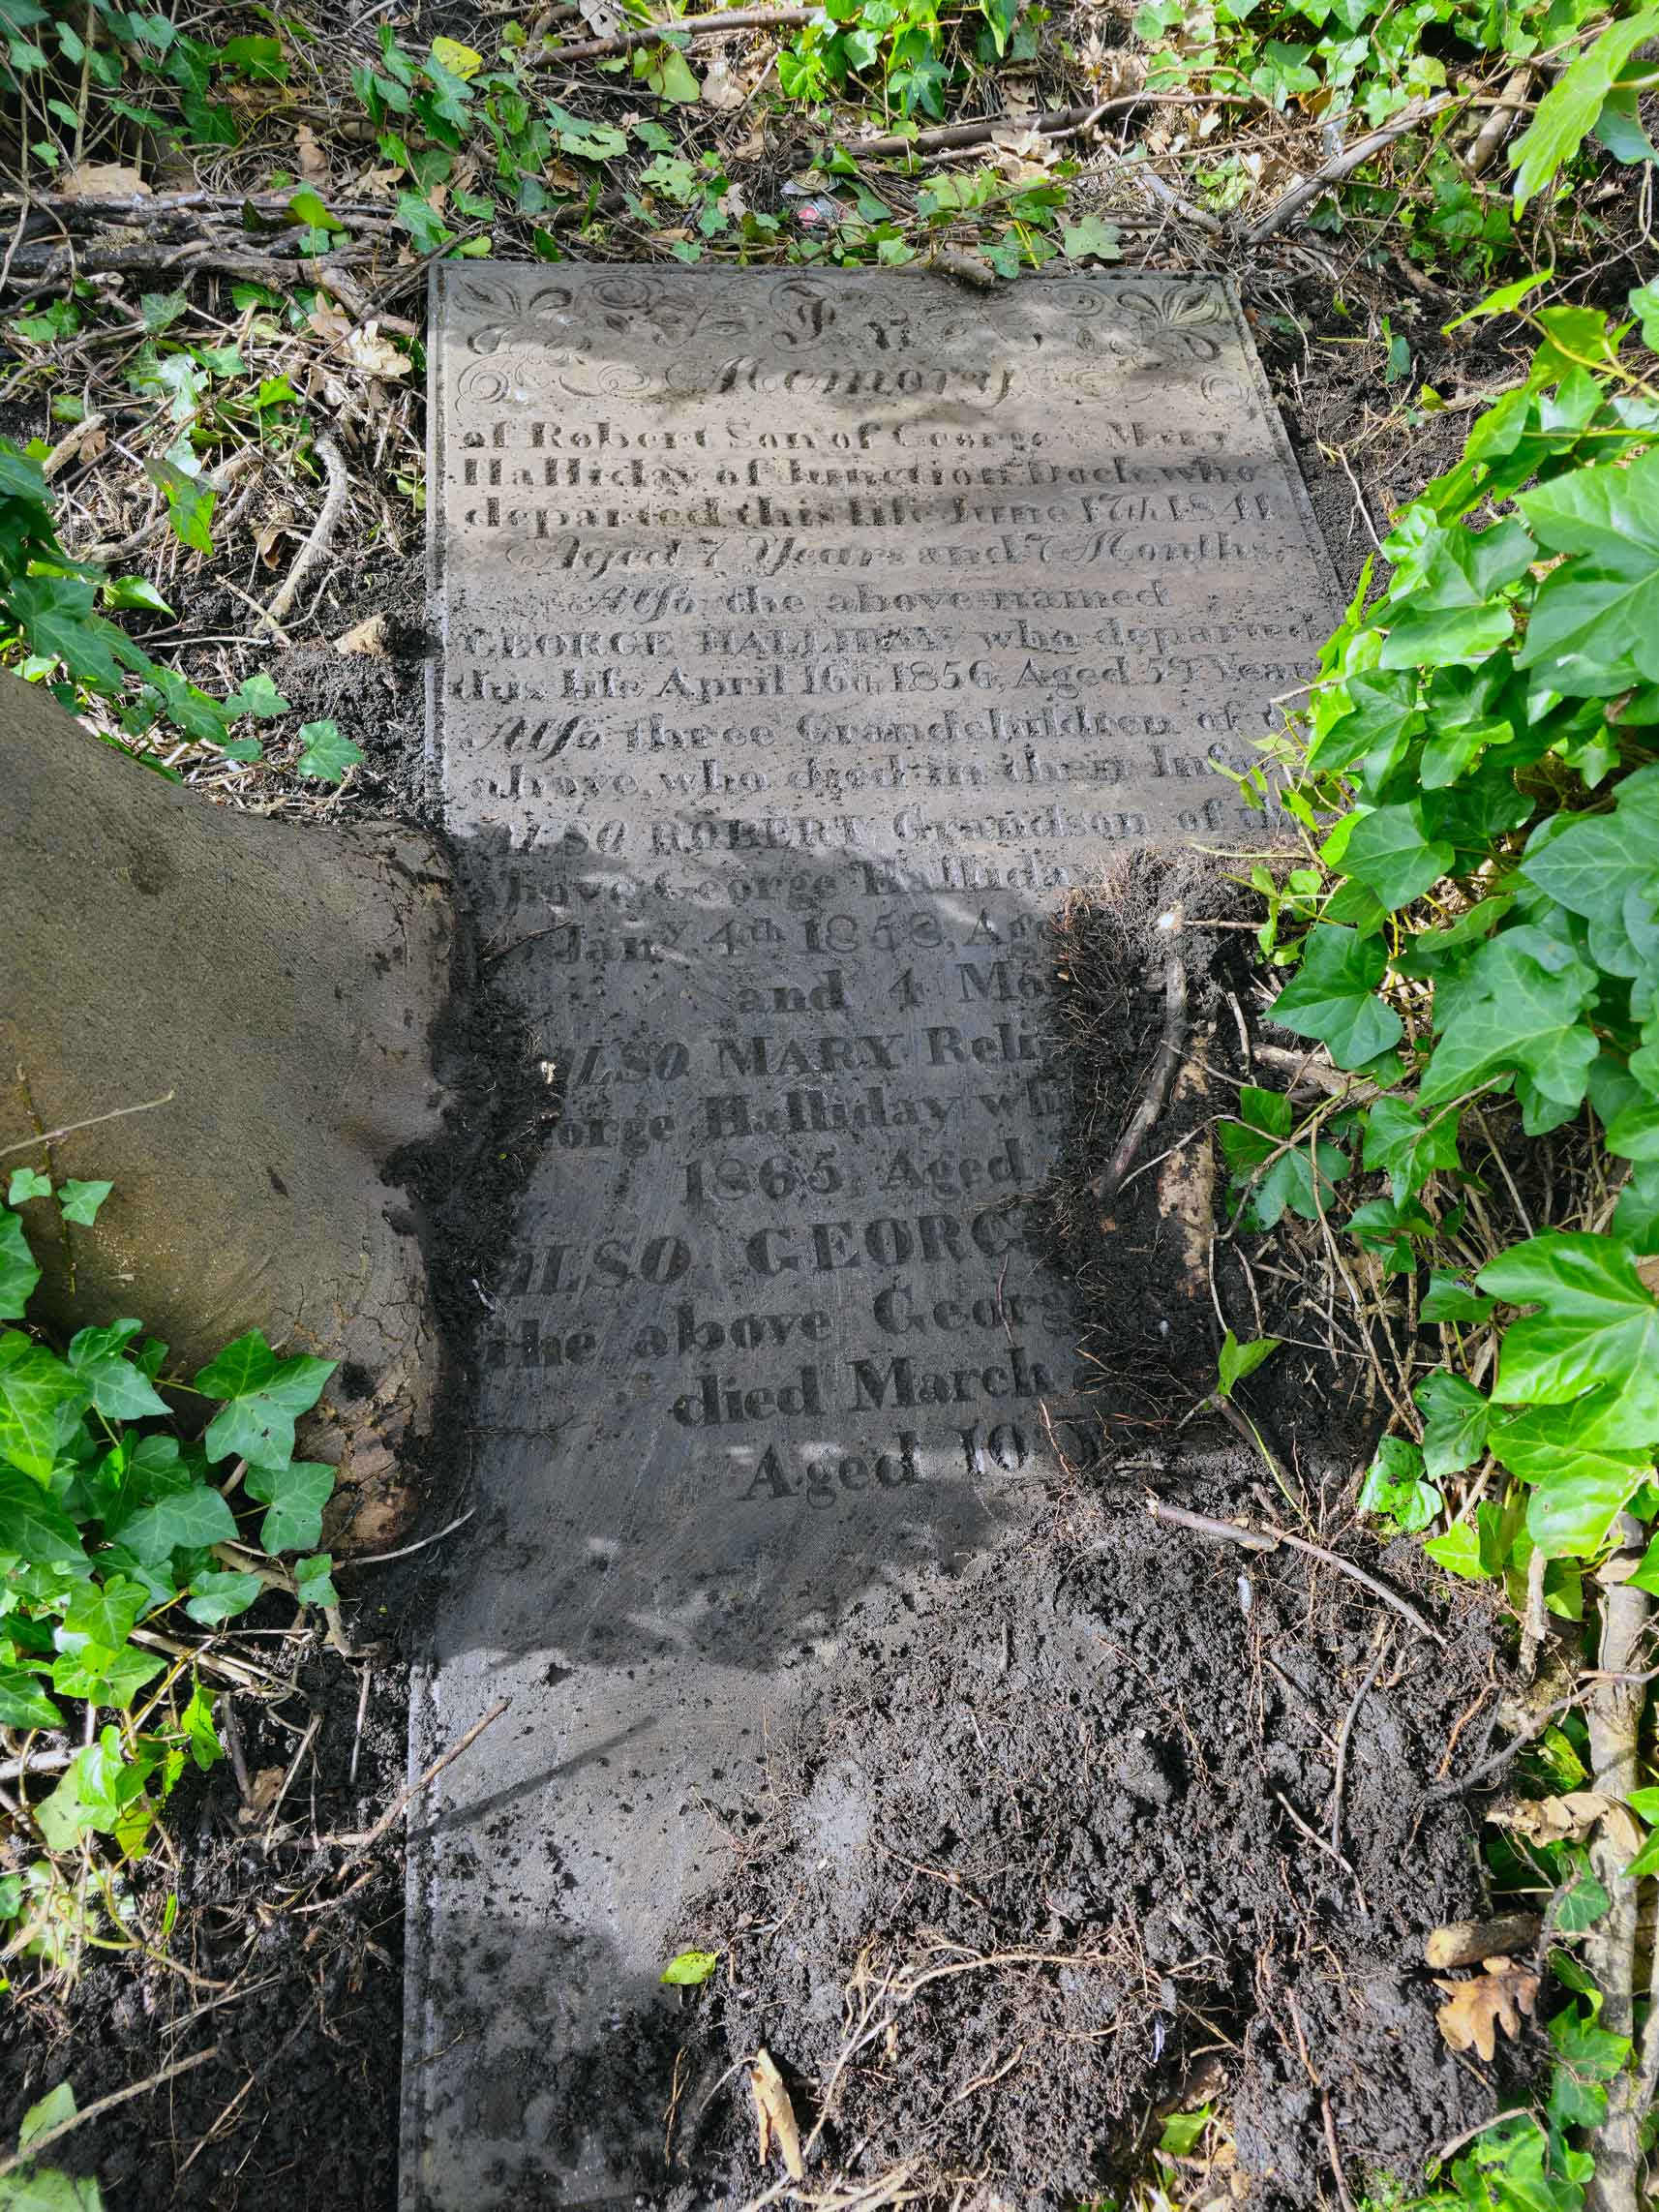 In
Memory
of Robert Son of George & Mary
Halliday of Junction Dock, who
departed this life June 17th, 1841
Aged 7 Years and 7 Months,
Also the above named
GEORGE HALLIDAY, who departed
this life April 16th, 1856, Aged Year
Also three Grandchildren of
above, who died in their Infan
ALSO ROBERT Grandson of th
above George Halliday
Jany 4th 1858, Age
and 4 Mo
ALSO MARY Reli
orge Halliday wh
1865, Aged
ALSO GEORG
the above Georg
died March
Aged 10